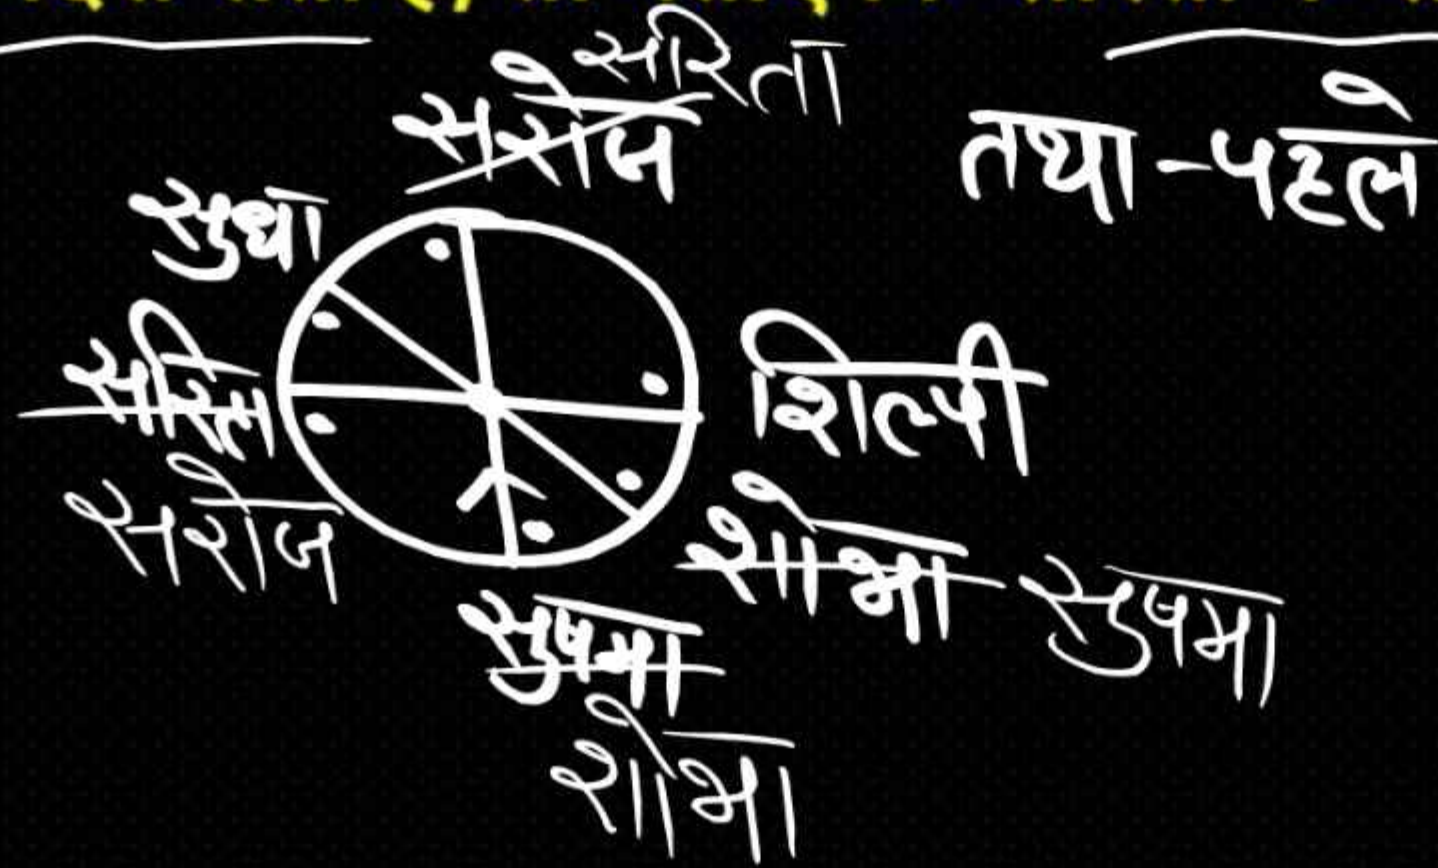 सरिता
सरोज
तथा-पहले
सुधा
सरिता
शिल्पी
सरोज
शोभा सुषमा
सुषमा
शोभा